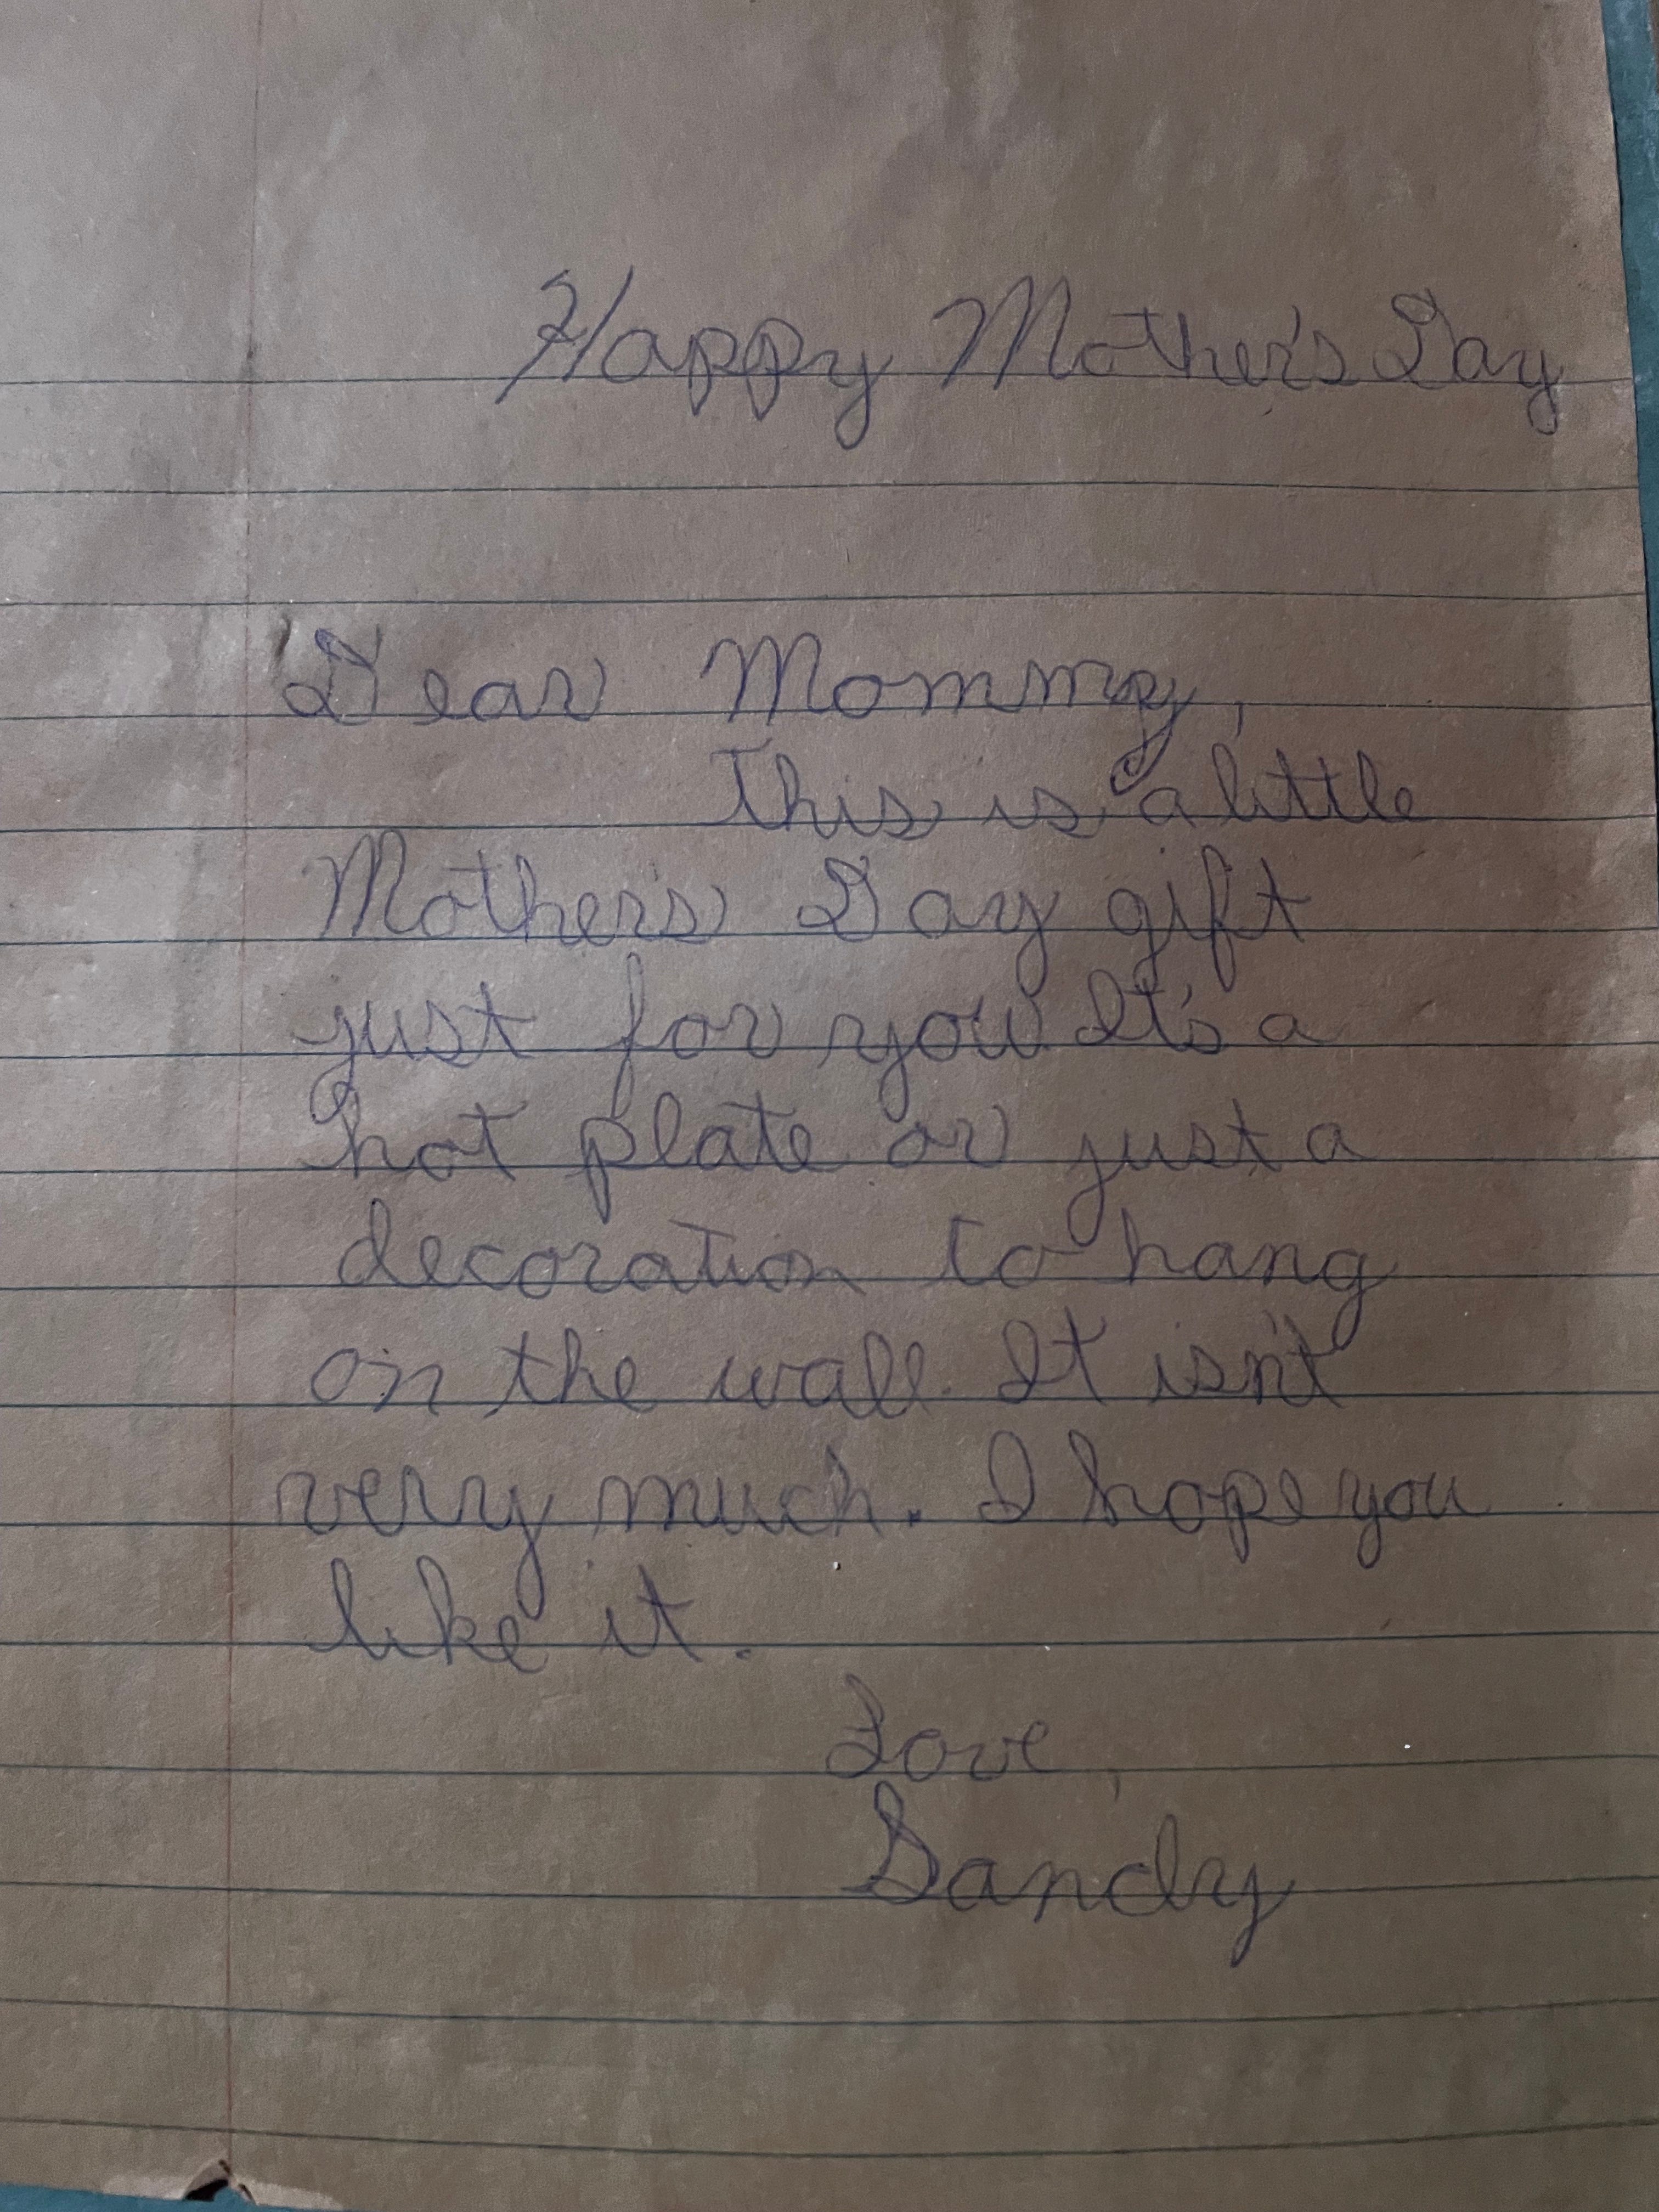 Happy Mother's Day
Dear Mommy,
This is a little
Mother's Day gift
just for you. It's a
hot plate or just a
decoration to hang
on the wall. It isn't
very much. I hope you
like it.
Love,
Sandy